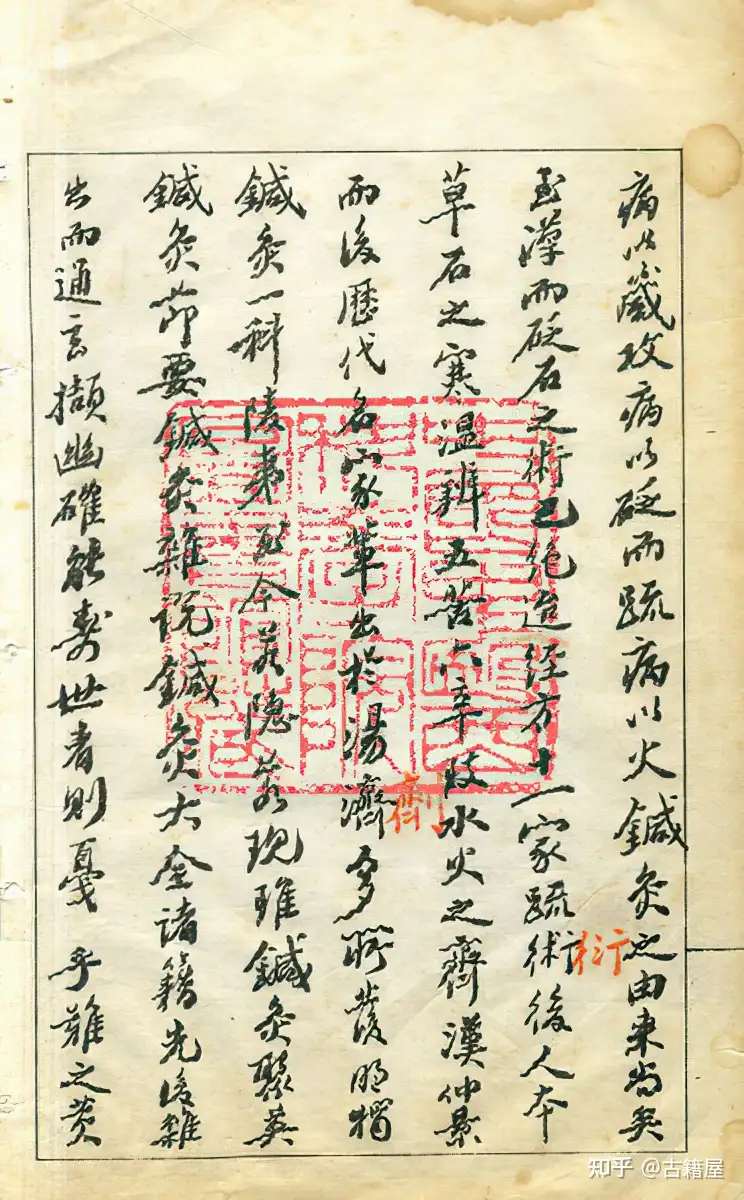 病以箴攻病以砭而疏病以火鍼灸之由來尚矣
至漢而砭石之術已絕迨经方十一家疏術後人本
衍
草石之寒温辨五苦六辛致水火之齊漢仲景
而後歷代名家輩出於湯濟多所發明獨
劑
鍼灸一科陵夷至今若隐若现雖鍼灸聚英
鍼灸節要鍼灸雜說鍼灸大全諸籍先後雜
出而通玄擷幽確能壽世者則戛乎難之黄
知乎 @古籍屋